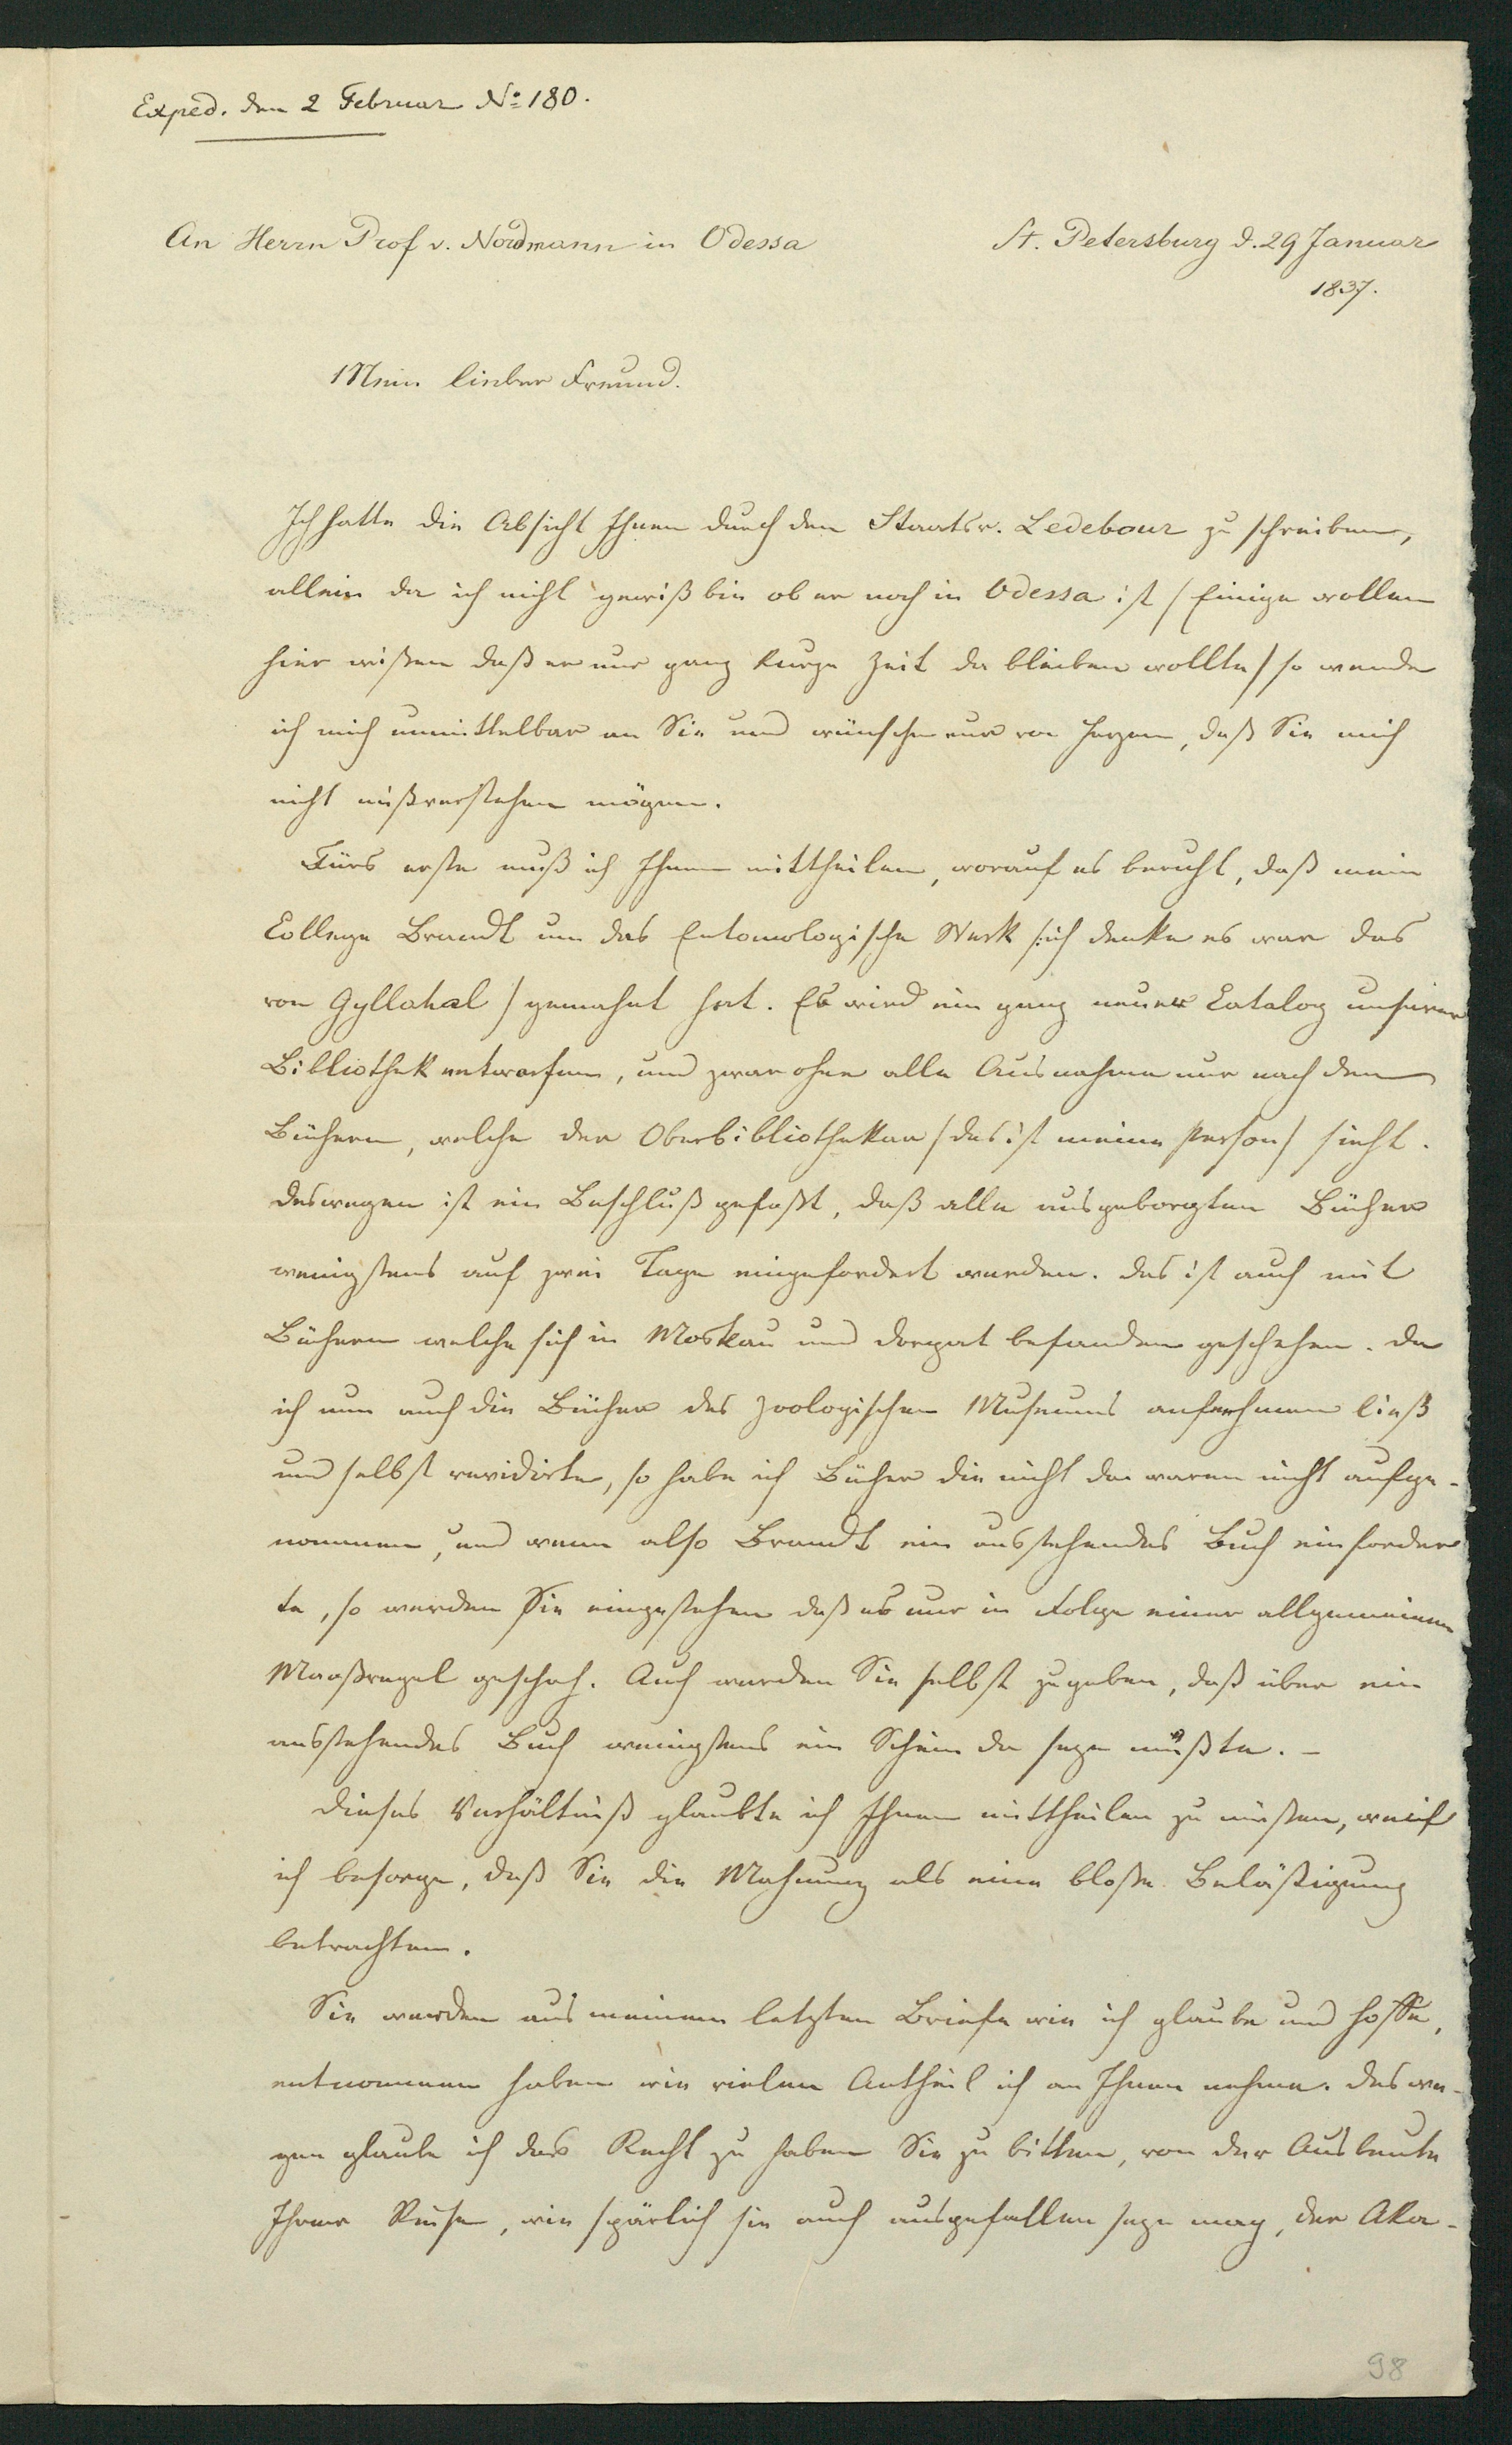 Exped. den 2 Februar No 180.
An Herrn Prof v. Nordmann in Odessa
St. Petersburg d. 29 Januar
1837.
Mein lieber Freund.
Ich hatte die Absicht Ihnen durch den Staatsr. Ledebour zu schreiben,
allein da ich nicht gewiß bin ob er noch in Odessa ist (Einige wollen
hier wißen daß er nur ganz kurze Zeit da bleiben wollte) so wende
ich mich unmittelbar an Sie und wünsche nur von Herzen, daß Sie mich
nicht mißverstehen mögen.
Fürs erste muß ich Ihnen mittheilen, worauf es beruht, daß mein
College Brandt um das Entomologische Werk (ich denke es war das
von Gyllahal) gemahnt hat. Es wird ein ganz neuer Catalog unserer
Bibliothek entworfen, und zwar ohne alle Ausnahme nur nach den
Büchern, welche der Oberbibliothekar (das ist meine Person) sieht.
Deswegen ist ein Beschluß gefaßt, daß alle ausgeborgten Bücher
wenigstens auf zwei Tage eingefordert werden. Das ist auch mit
Büchern welche sich in Moskau und Dorpat befanden geschehen. Da
ich nun auch die Bücher des zoologischen Museums aufnehmen ließ
und selbst revidirte, so habe ich Bücher die nicht da waren nicht aufge-
nommen, und wenn also Brandt ein ausstehendes Buch einforder
te, so werden Sie eingestehen daß es nur in Folge einer allgemeinen
Maaßregel geschah. Auch werden Sie selbst zugeben, daß über ein
ausstehendes Buch wenigstens ein Schein da seyn müßte. –
Dieses Verhältniß glaubte ich Ihnen mittheilen zu müßen, weil
ich besorge, daß Sie die Mahnung als eine bloße Beläßtigung
betrachten.
Sie werden aus meinem letzten Briefe wie ich glaube und hoffe,
entnommen haben wie vielen Antheil ich an Ihnen nehme. Deswe-
gen glaube ich das Recht zu haben Sie zu bitten, von der Ausbeute
Ihrer Reise, wie spärlich sie auch ausgefallen seyn mag, der Aka-
98